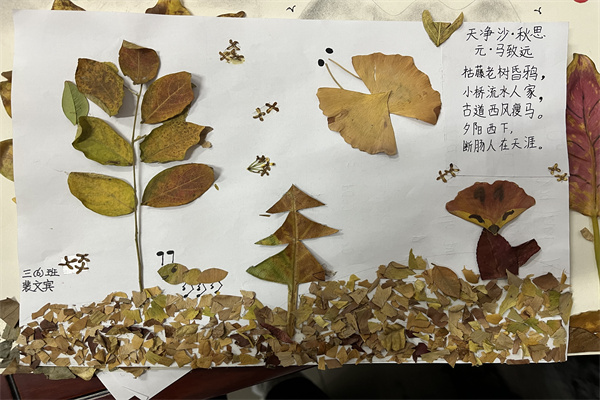 天净沙·秋思
元·马致远
枯藤老树昏鸦，
小桥流水人家，
古道西风瘦马。
夕阳西下，
断肠人在天涯。
三(6)班
裴文宾